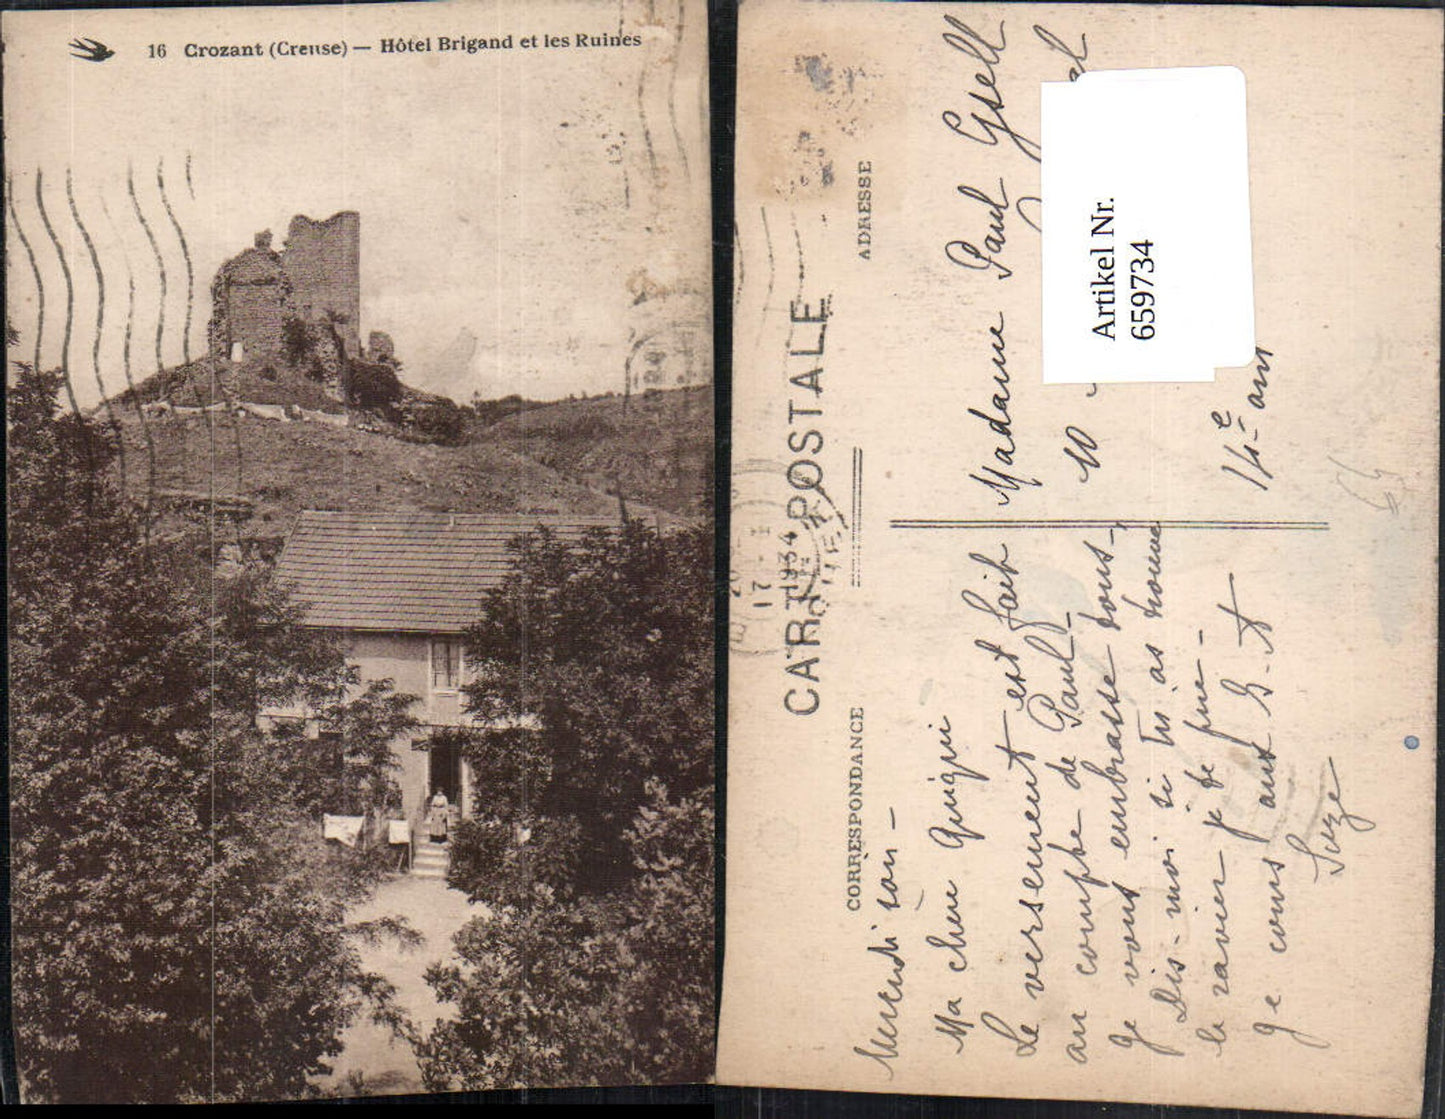 16 Crozant (Creuse) — Hôtel Brigand et les Ruines
CARTE POSTALE
CORRESPONDANCE
ADRESSE
17 - 1
1934
Mercredi soir -
Ma chère Quiqui
Le versement est fait
au compte de Paul -
Je vous embrasse tous -,
Dis-moi si tu as trouvé
le ravier je te prie -
Je cours aux G.A
Suze
Madame Paul Gsell
10
14e arr
Artikel Nr.
659734